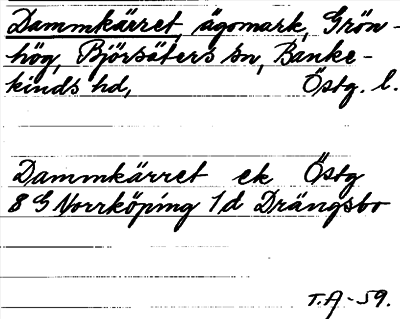 Dammkärret, ägomark, Grön-
hög, Björsäters sn, Banke-
kinds hd, Östg. l.
Dammkärret ek Östg
8 G Norrköping 1d Drängsbo
T.A-59.